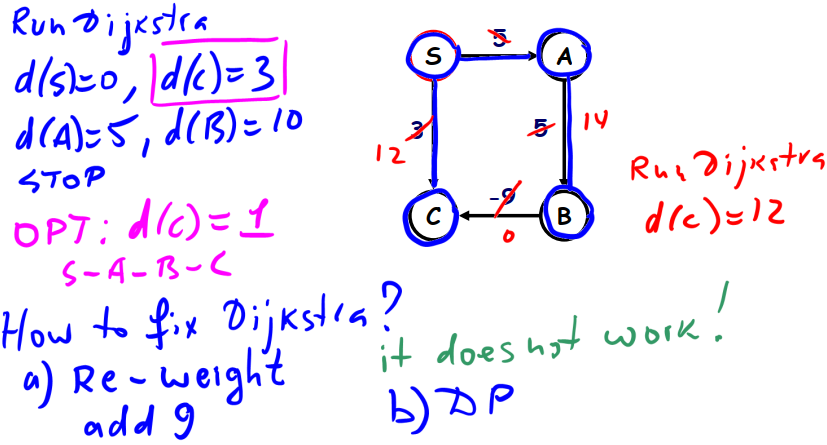 Run Dijkstra
d(s)=0, d(c)=3
d(A)=5, d(B)=10
STOP
OPT: d(c)=1
S-A-B-C
S 5 A
3 12
5 14
C -9 0 B
Run Dijkstra
d(c)=12
How to fix Dijkstra?
a) Re-weight
add 9
it does not work!
b) DP